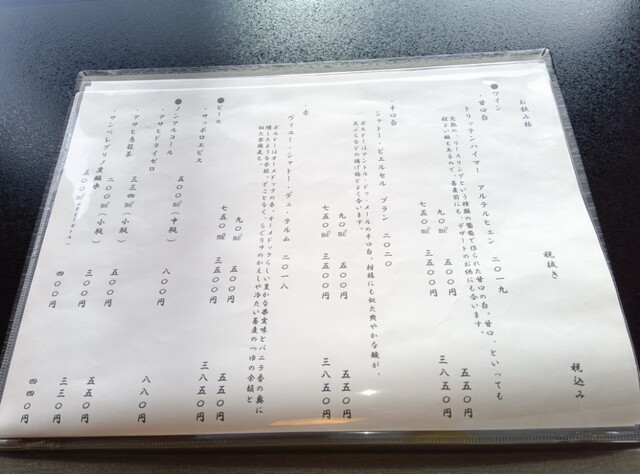 お飲み物　税抜き　税込み
●ワイン
・甘口白
トリッテンハイマー　アルテルヒェン　二〇一九
完熟の、リースリングという種類の葡萄で作られた甘口の白。甘口、といっても
程よい酸もあるので、蕎麦前にも、デザートのお供にも合います。
九〇㎖　五〇〇円　五五〇円
七五〇㎖　三五〇〇円　三八五〇円
・辛口白
シャトー・ピエルセル　ブラン　二〇二〇
ボルドーはアントル・ドゥ・メールの辛口白。柑橘にも似た爽やかな酸が、
天ぷらなどの揚げ物とよく合います。
九〇㎖　五〇〇円　五五〇円
七五〇㎖　三五〇〇円　三八五〇円
・赤
ヴィユー・シャトー・デュ・テルム　二〇一八
ボルドーはオー・メドックの赤。オー・メドックらしい豊かな果実味とバニラ香の奥に
燻したような余韻。どことなく、らくりのかえしや冷たい蕎麦のつゆの余韻と
似た雰囲気も。
九〇㎖　五〇〇円　五五〇円
七五〇㎖　三五〇〇円　三八五〇円
●ビール
・サッポロエビス
五〇〇㎖（中瓶）　八〇〇円　八八〇円
●ノンアルコール
・アサヒドライゼロ
三三四㎖（小瓶）　五〇〇円　五五〇円
・アサヒ烏龍茶
二〇〇㎖（小瓶）　三〇〇円　三三〇円
・サンペレグリノ炭酸水
五〇〇㎖　四〇〇円　四四〇円